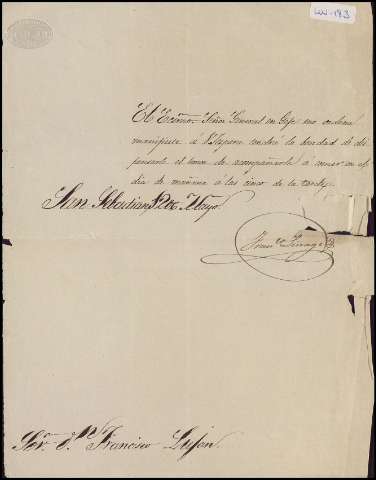 El Excmo. Señor General en Gefe me ordena
manifieste á V. espera tendrá la bondad de dis
pensarle el honor de acompañarle á comer en el
dia de mañana á las cinco de la tarde.
San Sebastian 26 Mayo
Sor. Dn. Francisco Luján.